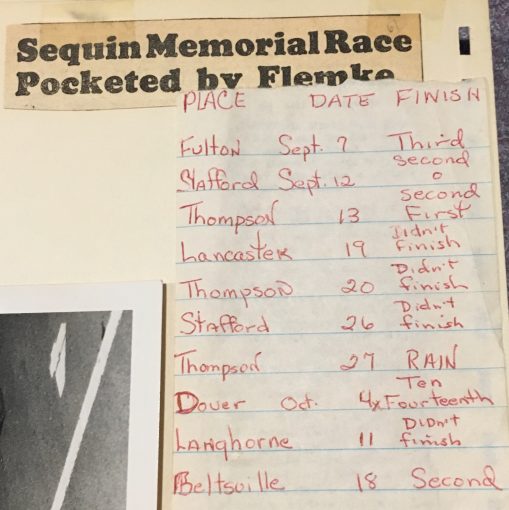 Sequin Memorial Race
Pocketed by Flemke
PLACE DATE FINISH
Fulton Sept. 7 Third
second
Stafford Sept. 12 o
second
Thompson 13 First
Lancaster 19 Didn't finish
Thompson 20 Didn't finish
Stafford 26 Didn't finish
Thompson 27 RAIN
Ten
Dover Oct. 4x Fourteenth
Langhorne 11 DIDN't finish
Beltsville 18 Second